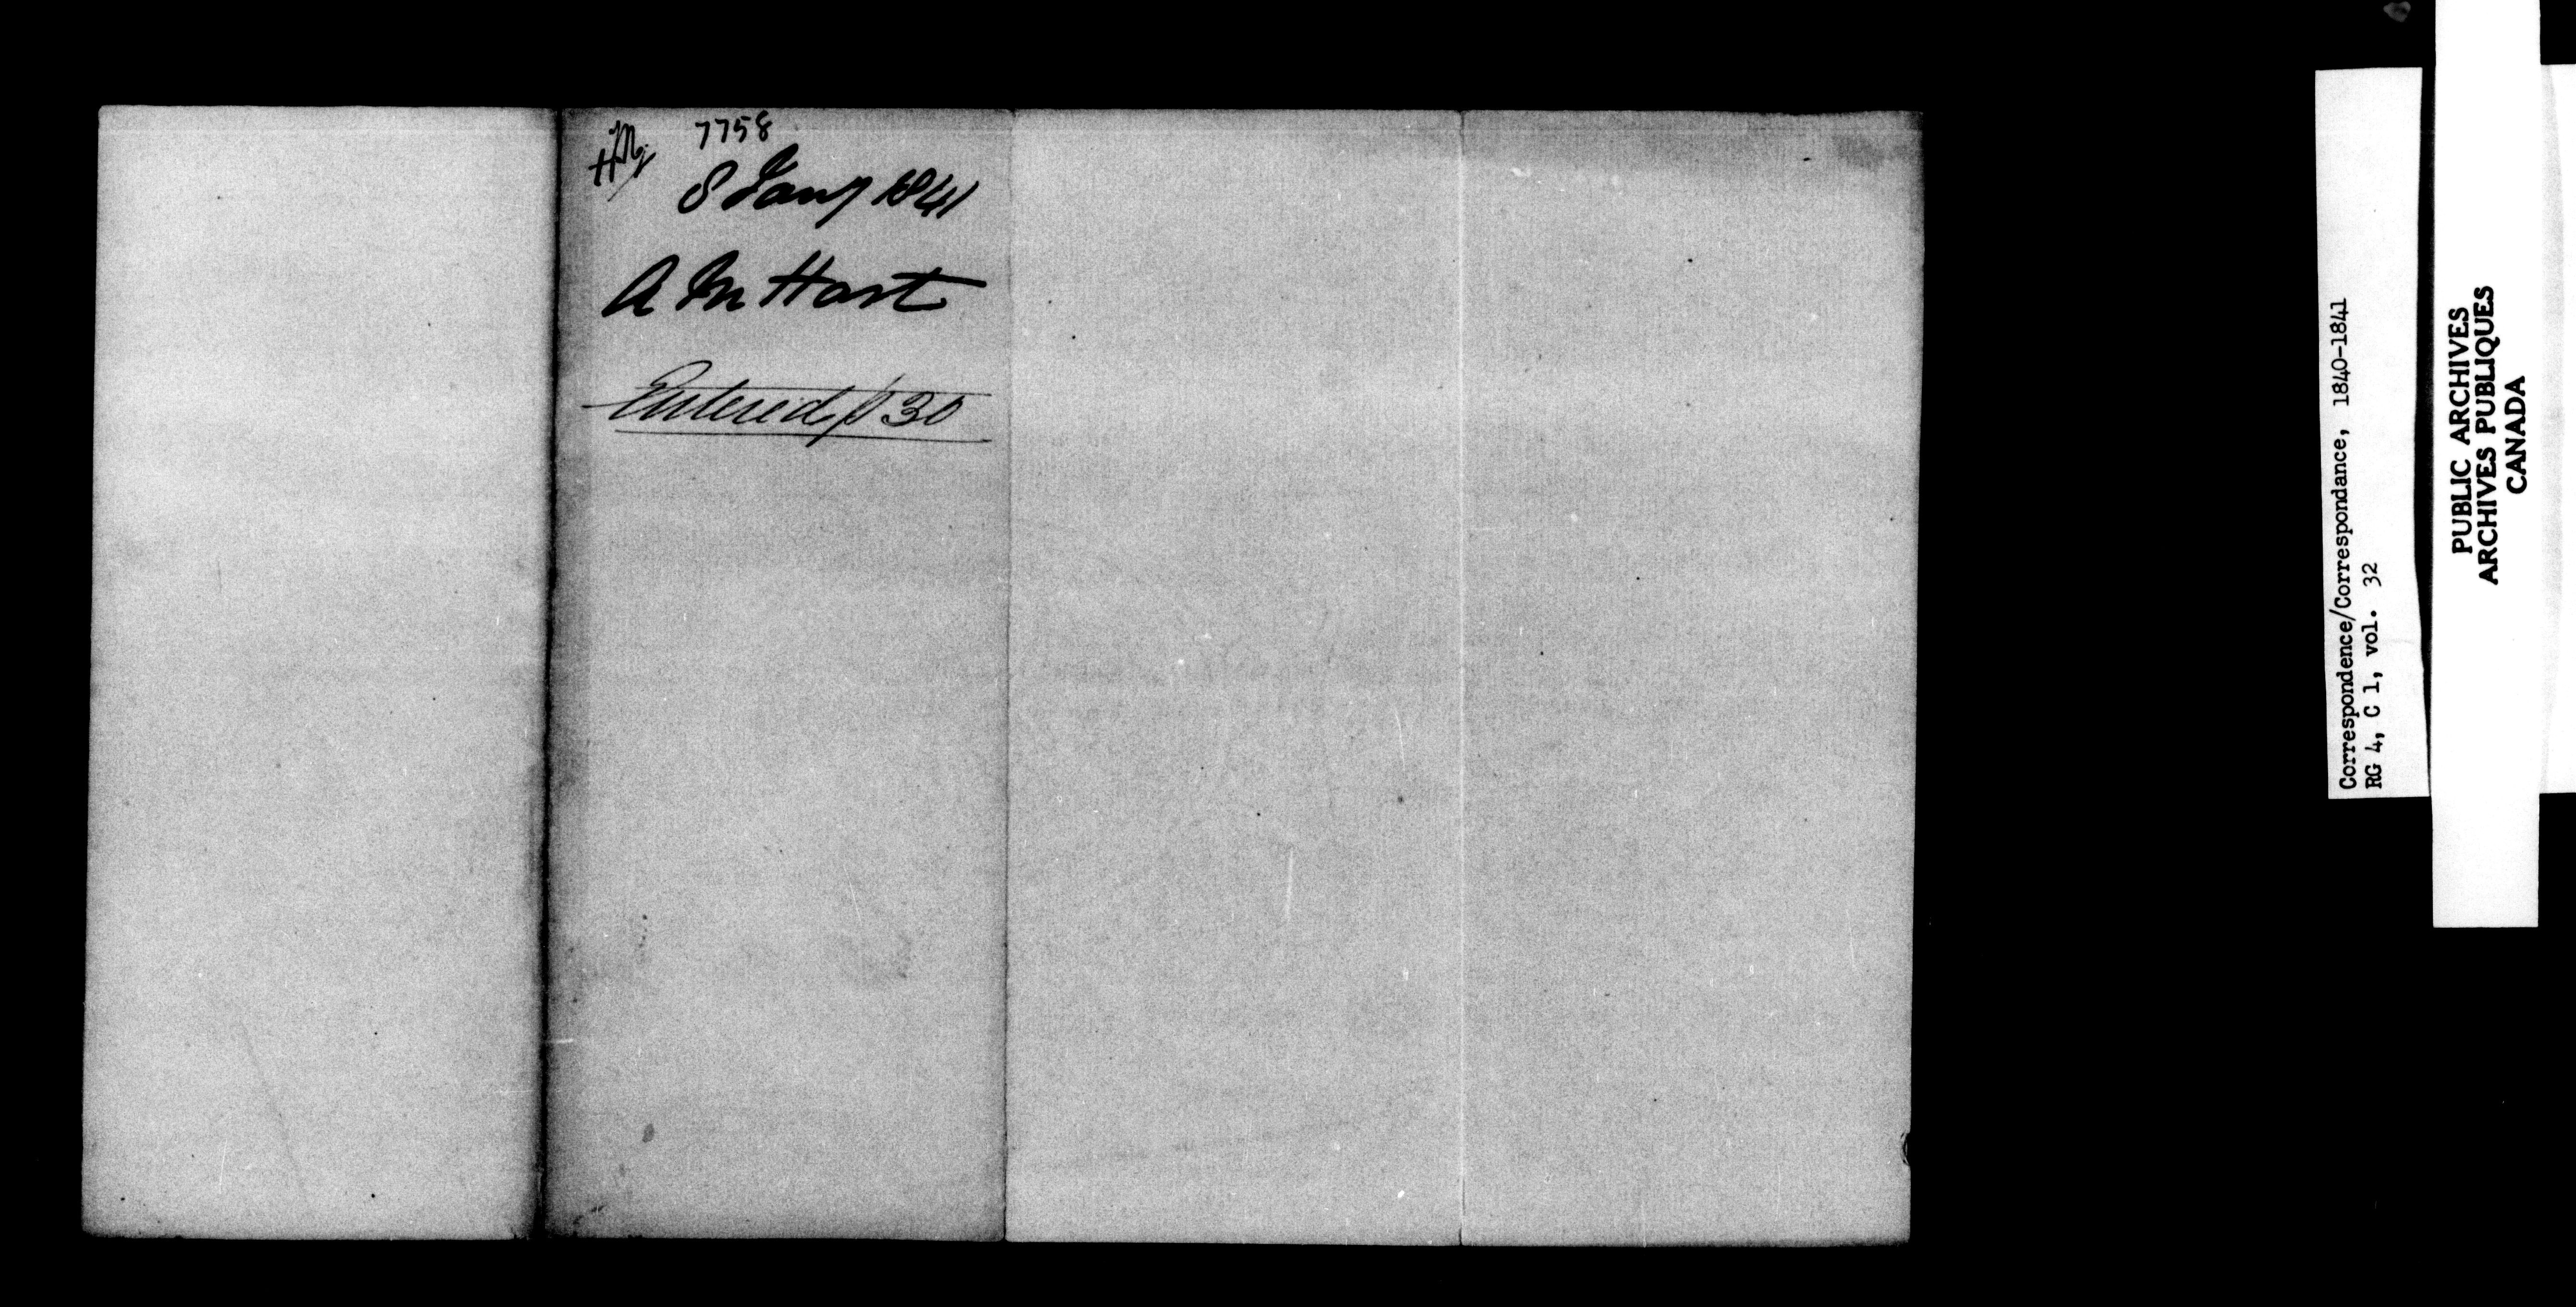 7758
8 Jany 1841
A M Hart
Entered p 30
Correspondence/Correspondance, 1840-1841
RG 4, C 1, vol. 32
PUBLIC ARCHIVES
ARCHIVES PUBLIQUES
CANADA